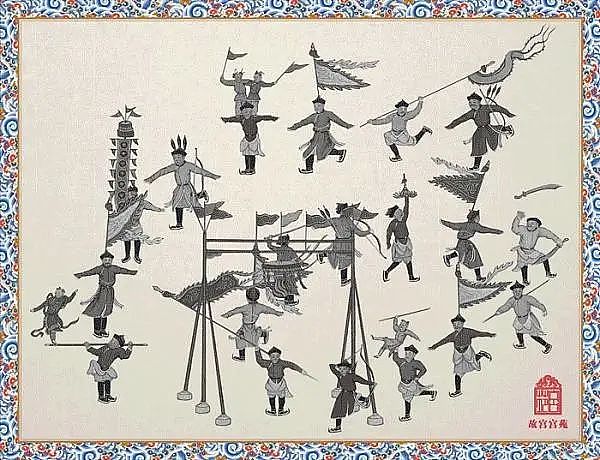 故宫宫苑